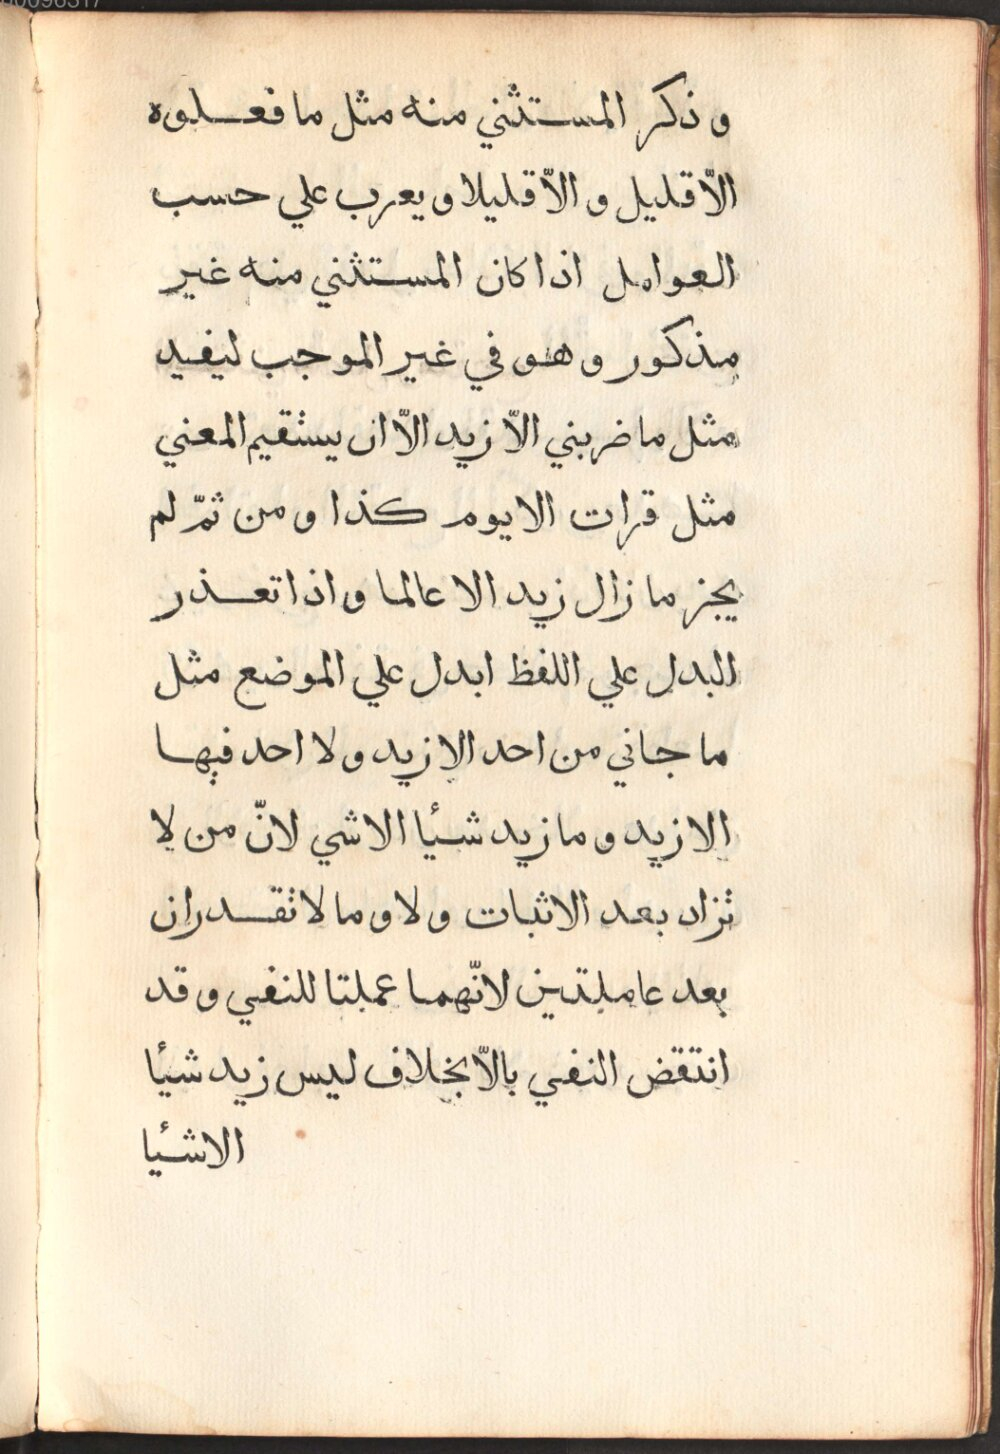 و ذكر المستثني منه مثل ما فعلوه
الاّ قليل و الاّ قليلا و يعرب علي حسب
العوامل اذا كان المستثني منه غير
مذكور و هو في غير الموجب ليفيد
مثل ما ضربني الاّ زيد الاّ ان يستقيم المعني
مثل قرات الا يوم كذا و من ثمّ لم
يجز ما زال زيد الا عالما و اذا تعذر
البدل علي اللفظ ابدل علي الموضع مثل
ما جاني من احد الا زيد و لا احد فيها
الا زيد و ما زيد شئيا الا شي لانّ من لا
تزاد بعد الاثبات و لا و ما لا تقدران
بعد عاملتين لانّهما عملتا للنفي و قد
انتقض النفي بالاّ بخلاف ليس زيد شئيا
الا شئيا